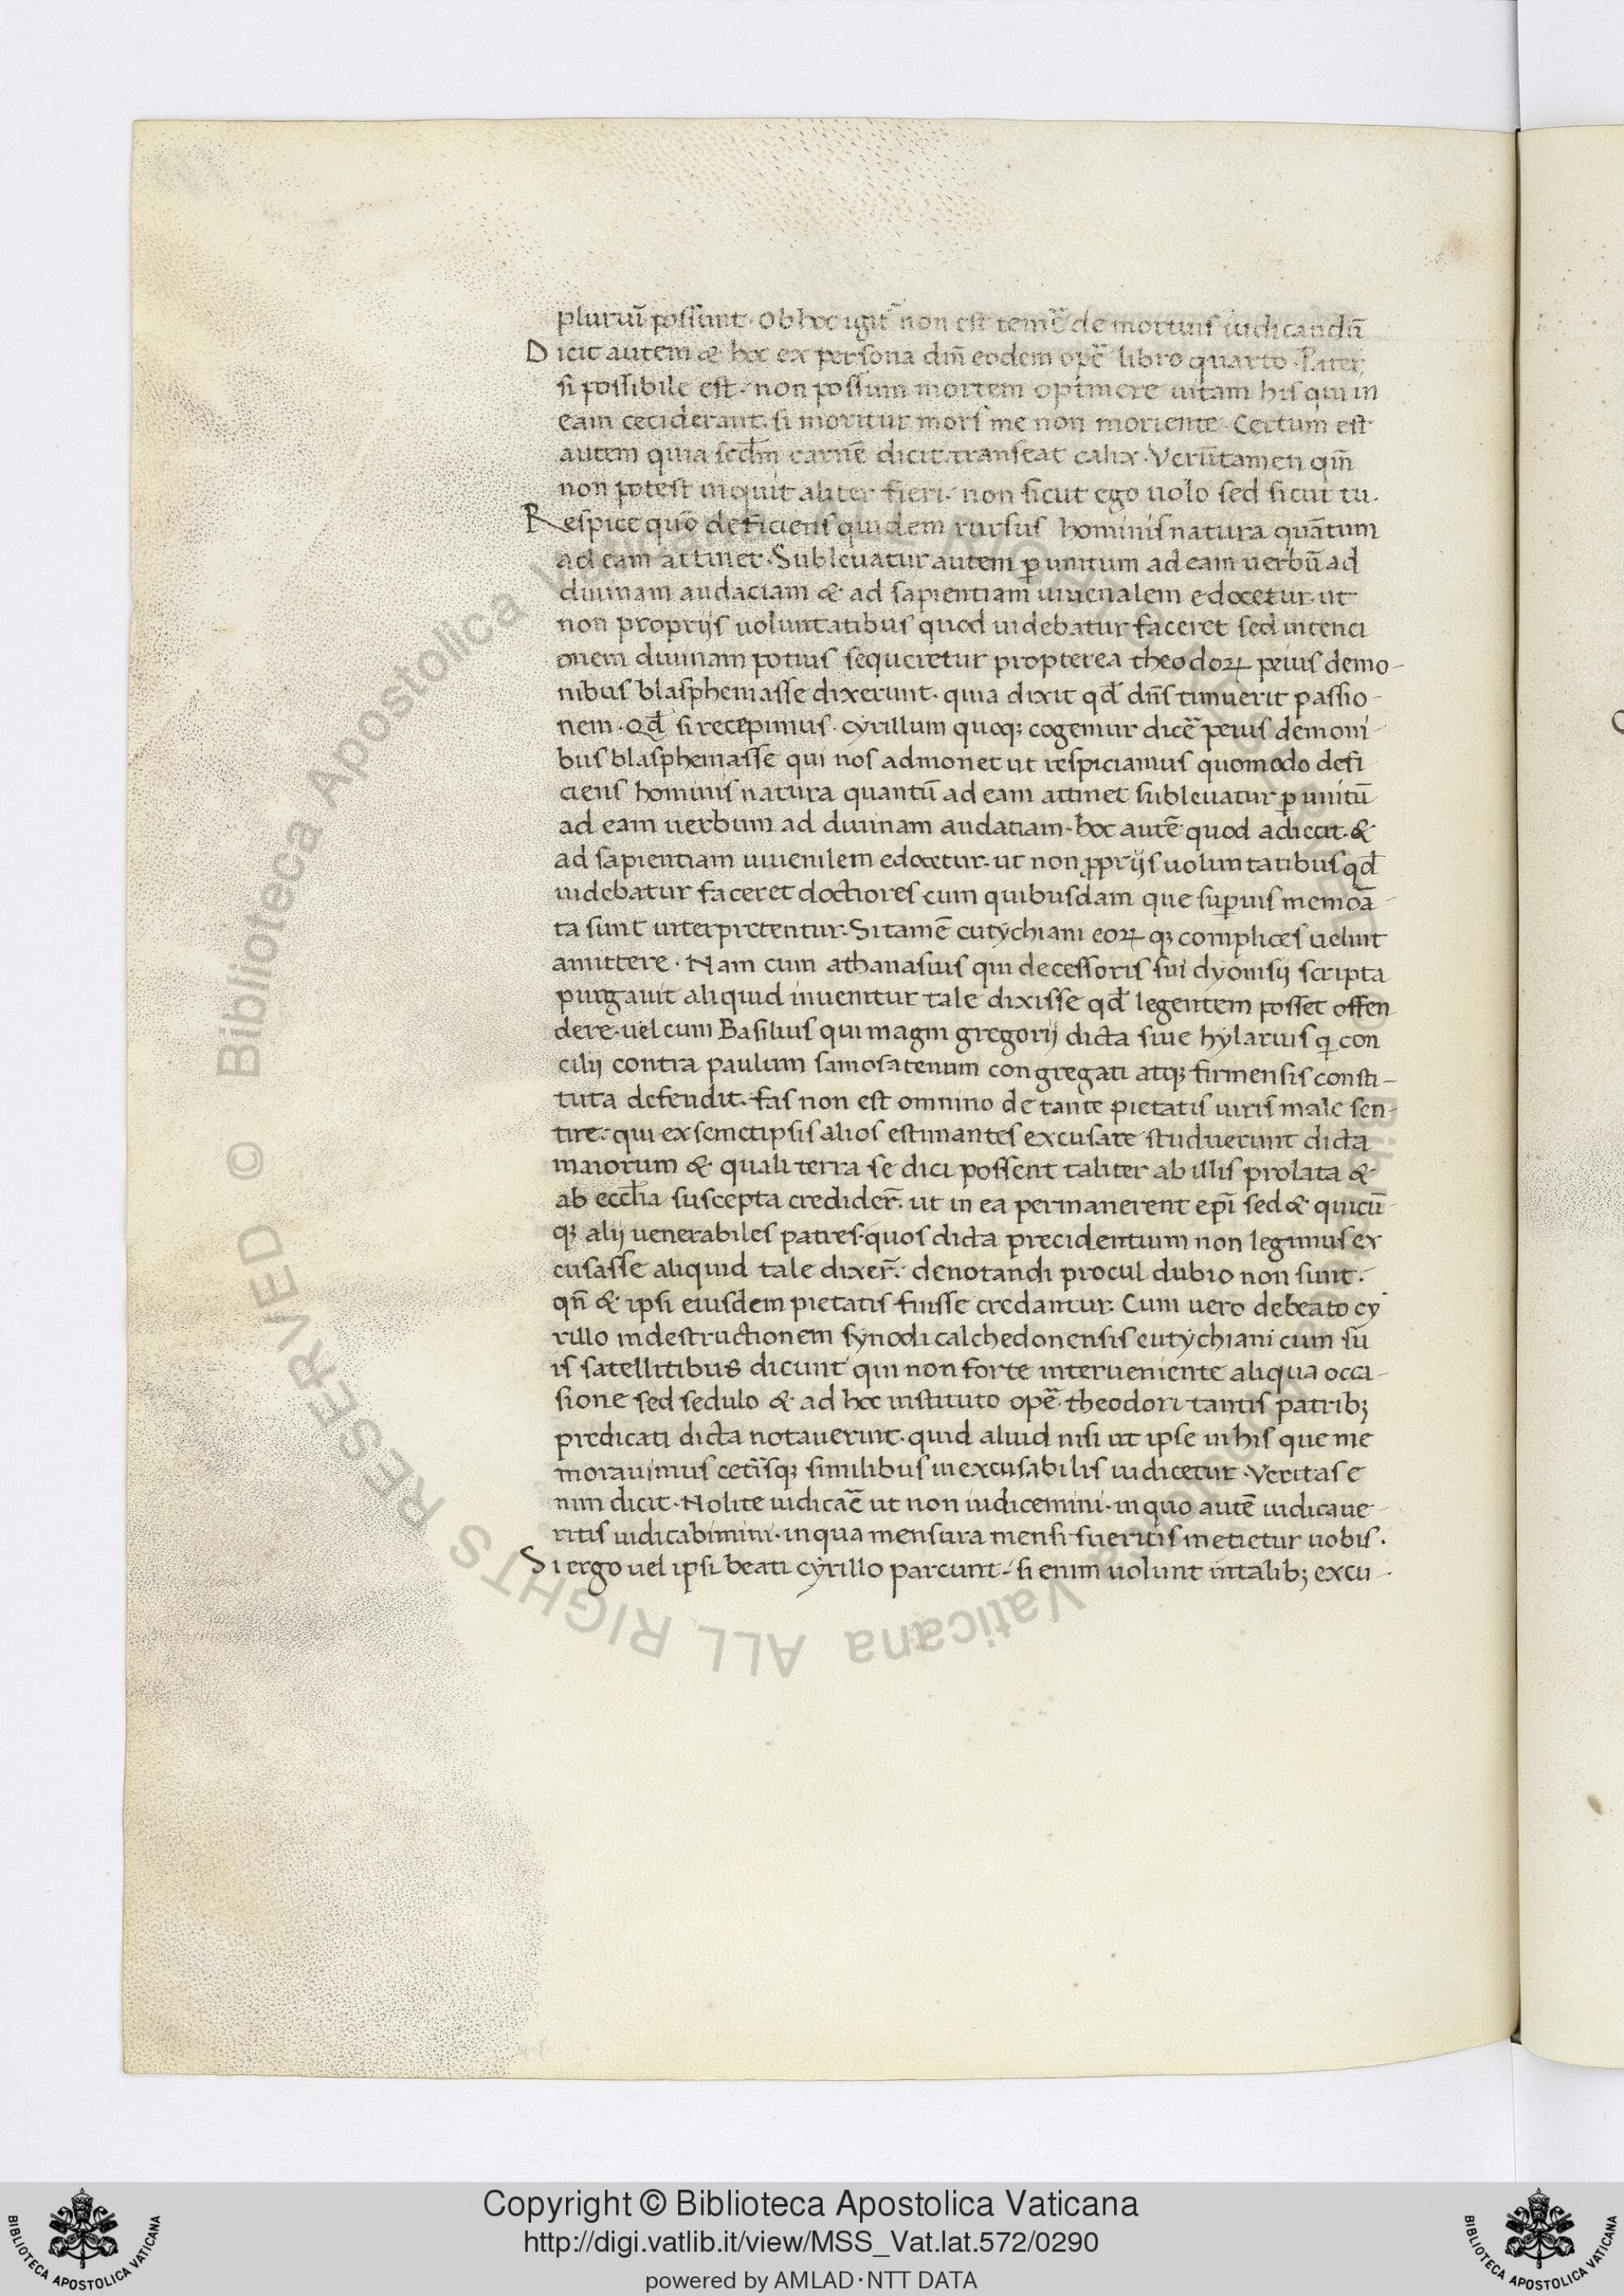 pluruı̄ possunt. Ob hoc igit᷑ non est tem̄e de mortuis iudicandū
Dicit autem & hoc ex persona dn̄i eodem op̄e libro quarto. Pater,
si possibile est. non possum mortem optinere uitam his qui in
eam ceciderant. si moritur mors me non moriente. Certum est
autem quia scd̄m carnē dicit. transeat calix. Verūtamen qm̄
non potest inquit aliter fieri. non sicut ego uolo sed sicut tu.
Respice quō deficiens quidem rursus hominis natura quātum
ad eam attinet. Subleuatur autem ꝑ unitum ad eam uerbū ad
diuinam audaciam & ad sapientiam iuuenalem edocetur. ut
non proprijs uoluntatibus quod uidebatur faceret sed intenci
onem diuinam potius sequeretur propterea theodoꝝ peius demo-
nibus blasphemasse dixerunt. quia dixit qd̄ dn̄s timuerit passio-
nem. Qd̄ si recepimus. cyrillum quoqꝫ cogemur dic̄e peius demoni-
bus blasphemasse qui nos admonet ut respiciamus quomodo defi
ciens hominis natura quantū ad eam attinet subleuatur ꝑ unitū
ad eam uerbum ad diuinam audatiam. hoc autē quod adiecit. &
ad sapientiam iuuenilem edocetur. ut non ꝓprijs uoluntatibus qd̄
uidebatur faceret doctiores cum quibusdam que suꝑius memorā-
ta sunt interpretentur. Si tamē eutychiani eoꝝ qꝫ complices uelint
amittere. Nam cum athanasius qui decessoris sui dyonisij scripta
purgauit aliquid inuenitur tale dixisse qd̄ legentem posset offen-
dere. uel cum Basilius qui magni gregorij dicta siue hylarius qi con
cilij contra paulum samosatenum congregati atqꝫ firmensis consti-
tuta defendit. fas non est omnino de tante pietatis uiris male sen-
tire. qui ex semetipsis alios estimantes excusare studuerunt dicta
maiorum & quali terra se dici possent taliter ab illis prolata &
ab eccl̄ia suscepta credider̄. ut in ea permanerent ep̄i sed & quicū-
qꝫ alij uenerabiles patres. quos dicta precidentium non legimus ex
cusasse aliquid tale dixer̄. denotandi procul dubio non sunt.
qn̄ & ipsi eiusdem pietatis fuisse credantur. Cum uero de beato cy-
rillo in destructionem synodi calchedonensis eutychiani cum su
is satellitibus dicunt qui non forte interueniente aliqua occa-
sione sed sedulo & ad hoc instituto op̄e. theodori tantis patribꝫ
predicati dicta notauerint. quid aliud nisi ut ipse in his que me
morauimus cet̄isqꝫ similibus inexcusabilis iudicetur. Veritas e
nim dicit. Nolite iudicar̄e ut non iudicemini. in quo autē iudicaue-
ritis iudicabimini. in qua mensura mensi fueritis metietur uobis.
Si ergo uel ipsi beati cyrillo parcunt. si enim uolunt in talibꝫ excu-
Copyright © Biblioteca Apostolica Vaticana
http://digi.vatlib.it/view/MSS_Vat.lat.572/0290
powered by AMLAD·NTT DATA
BIBLIOTECA APOSTOLICA VATICANA
BIBLIOTECA APOSTOLICA VATICANA